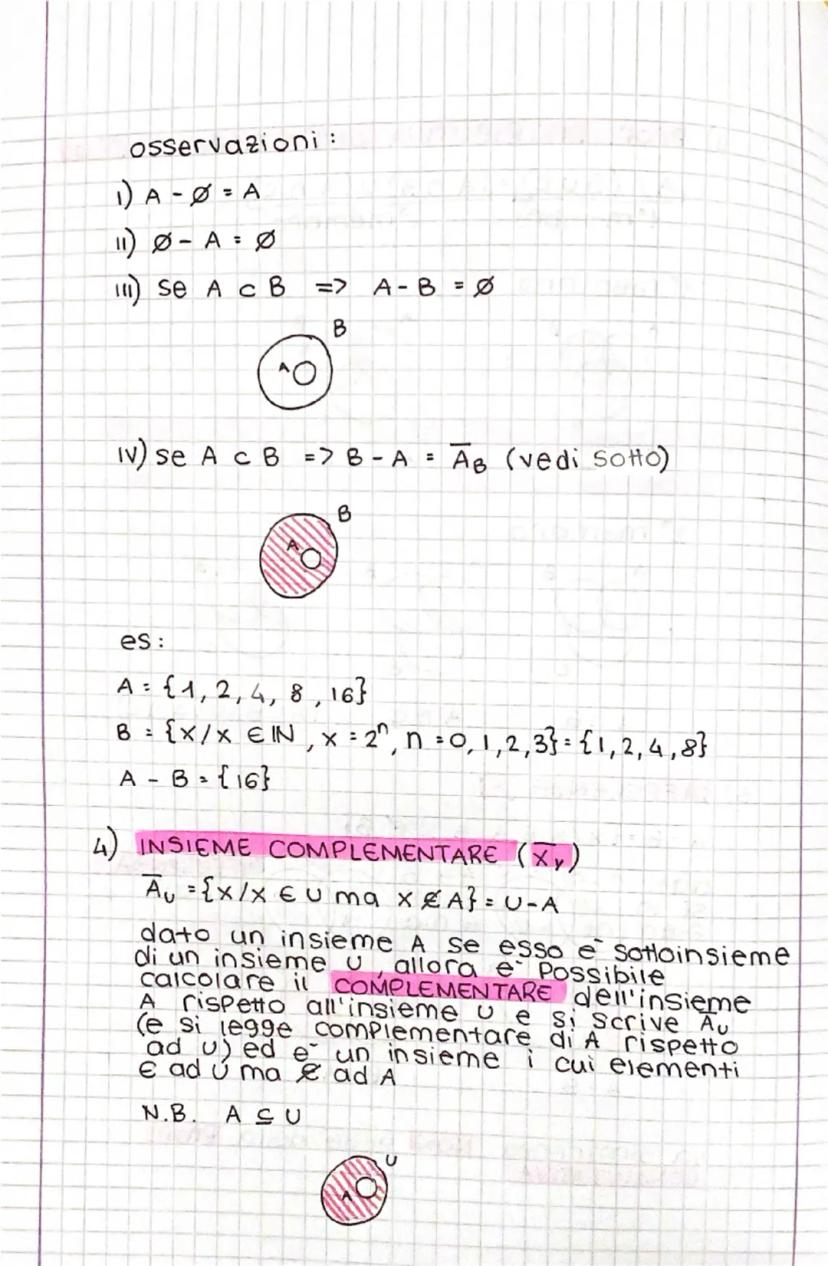 osservazioni:
I) A - ∅ = A
II) ∅ - A = ∅
III) se A ⊂ B => A - B = ∅
B
A
IV) se A ⊂ B => B - A = A̅_B (vedi sotto)
B
A
es:
A = {1, 2, 4, 8, 16}
B = {x/x ∈ ℕ, x = 2ⁿ, n = 0, 1, 2, 3} = {1, 2, 4, 8}
A - B = {16}
4) INSIEME COMPLEMENTARE (X̅_Y)
A̅_U = {x/x ∈ U ma x ∉ A} = U - A
dato un insieme A se esso è sottoinsieme
di un insieme U, allora è possibile
calcolare il COMPLEMENTARE dell'insieme
A rispetto all'insieme U e si scrive A̅_U
(e si legge complementare di A rispetto
ad U) ed è un insieme i cui elementi
∈ ad U ma ∉ ad A
N.B. A ⊆ U
U
A